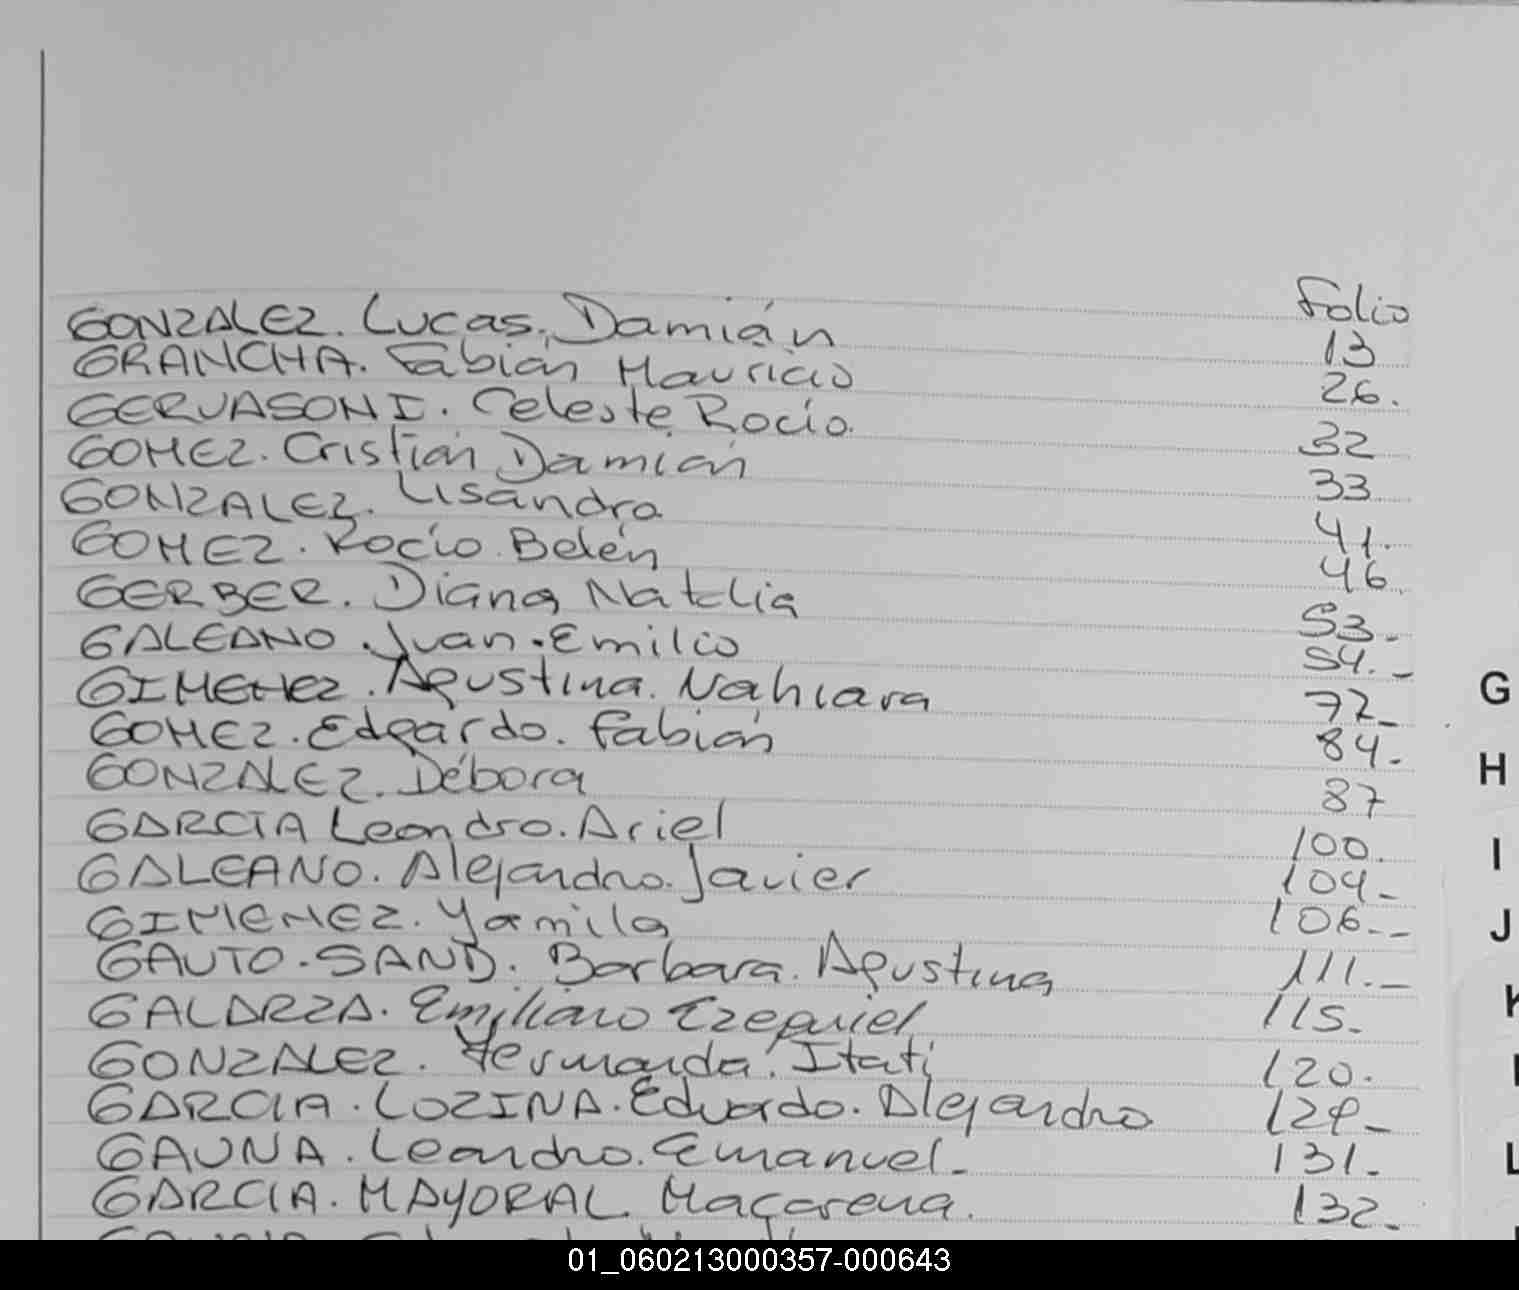 Folio
GONZALEZ. Lucas, Damián 13
GRANCHA. Fabián Mauricio 26.
GERVASONI. Celeste Rocío. 32
GOMEZ. Cristián Damián 33
GONZALEZ. Lisandro 41.
GOMEZ. Rocío Belén 46
GERBER. Diana Natalia 53-
GALEANO. Juan. Emilio 54.-
GIMENEZ. Agustina. Nahiara 72-
GOMEZ. Edgardo. Fabián 84-
GONZALEZ. Débora 87
GARCIA Leandro. Ariel 100.
GALEANO. Alejandro. Javier 104-
GIMENEZ. Yamila 106.--
GAUTO. SAND. Barbara. Agustina 111.-
GALARZA. Emiliano Ezequiel 115.
GONZALEZ. Fernanda. Itatí 120.
GARCIA. LOZINA. Eduardo. Alejandro
GAUNA. Leandro. Emanuel- 131-
GARCIA. MAYORAL Macarena. 132-
G
H
I
J
K
L
01_060213000357-000643